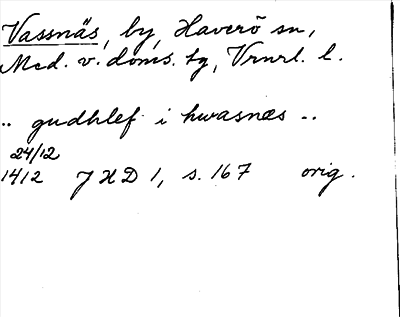 Vassnäs, by, Haverö sn,
Med. v. doms. tg, Vrnrl. l.
.. gudhlef i hwasnæs ..
24/12
1412 JHD 1, s. 167 orig.